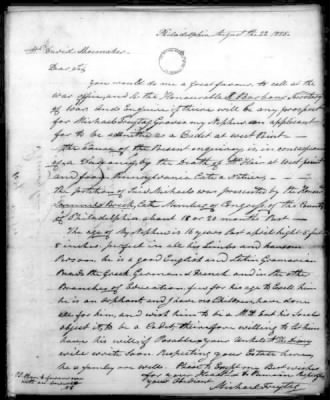 Philadelphia August the 22. 1828.
Mr David
Dear Sir,
You would do me a great favour, to call at the
war office, and to the Honourable P. Barbour Secretary
of War. And Enquire if there will be any prospect
for Michael Freytag my Nephew an applicant
for to be admitted as a Cadet at West Point —
the Cause of the Present enquiry is, in consequence
of a Vacancy, by the Death of Mr at West point
and from Pennsylvania Late a Native, —
the petition of Said Michael was presented by the Honor
Late Member of Congress of the County
of Philadelphia about 18 or 20 months Past —
The age of my Nephew is 16 years Past april hight 5 feet
8 inches, perfect in all his Limbs and hansom
Person he is a good English and Latin Gramarian
Reads the Greek German & French and in the other
Branches of Education few for his age to Excell him
he is an orphant and I have no Children, have done
all for him, and wish him to be a but his Souls
object is, to be a Cadet, therefore willing to let him
have his will if Possable, your
will write Soon Respecting your Estate
& family are well. Please to my Best wishes
for your Health &c. Remain Respectfully
your
Michael Freytag